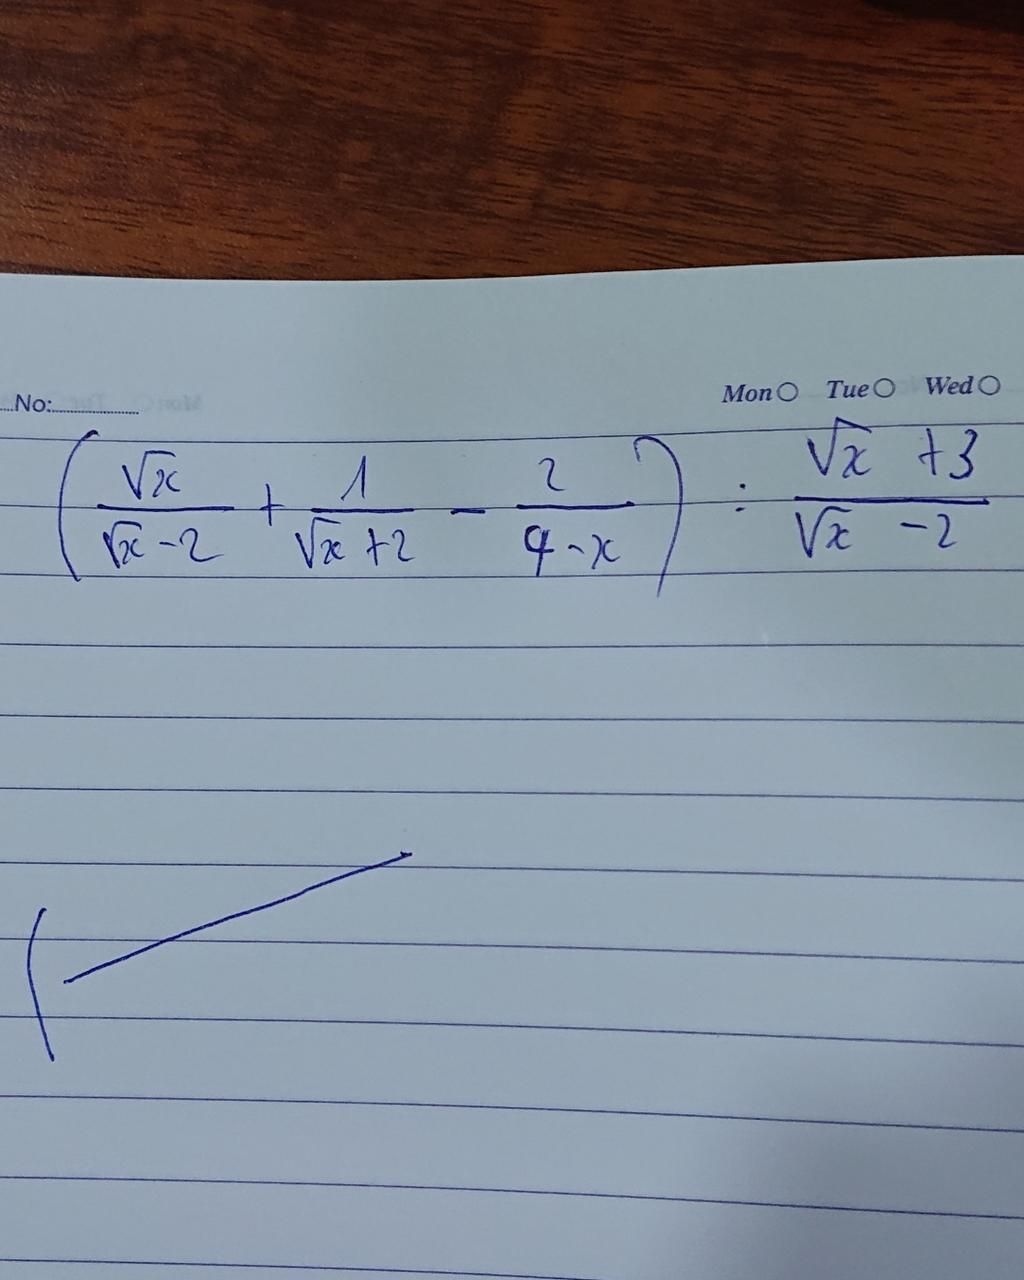 No:
Mon Tue Wed
( √x/(√x-2) + 1/(√x+2) - 2/(4-x) ) : (√x +3)/(√x -2)
(